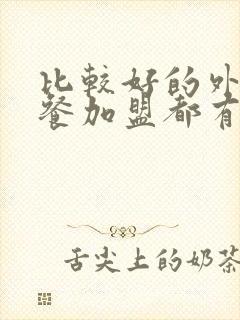 比較好的外
餐加盟都有
舌尖上的奶茶